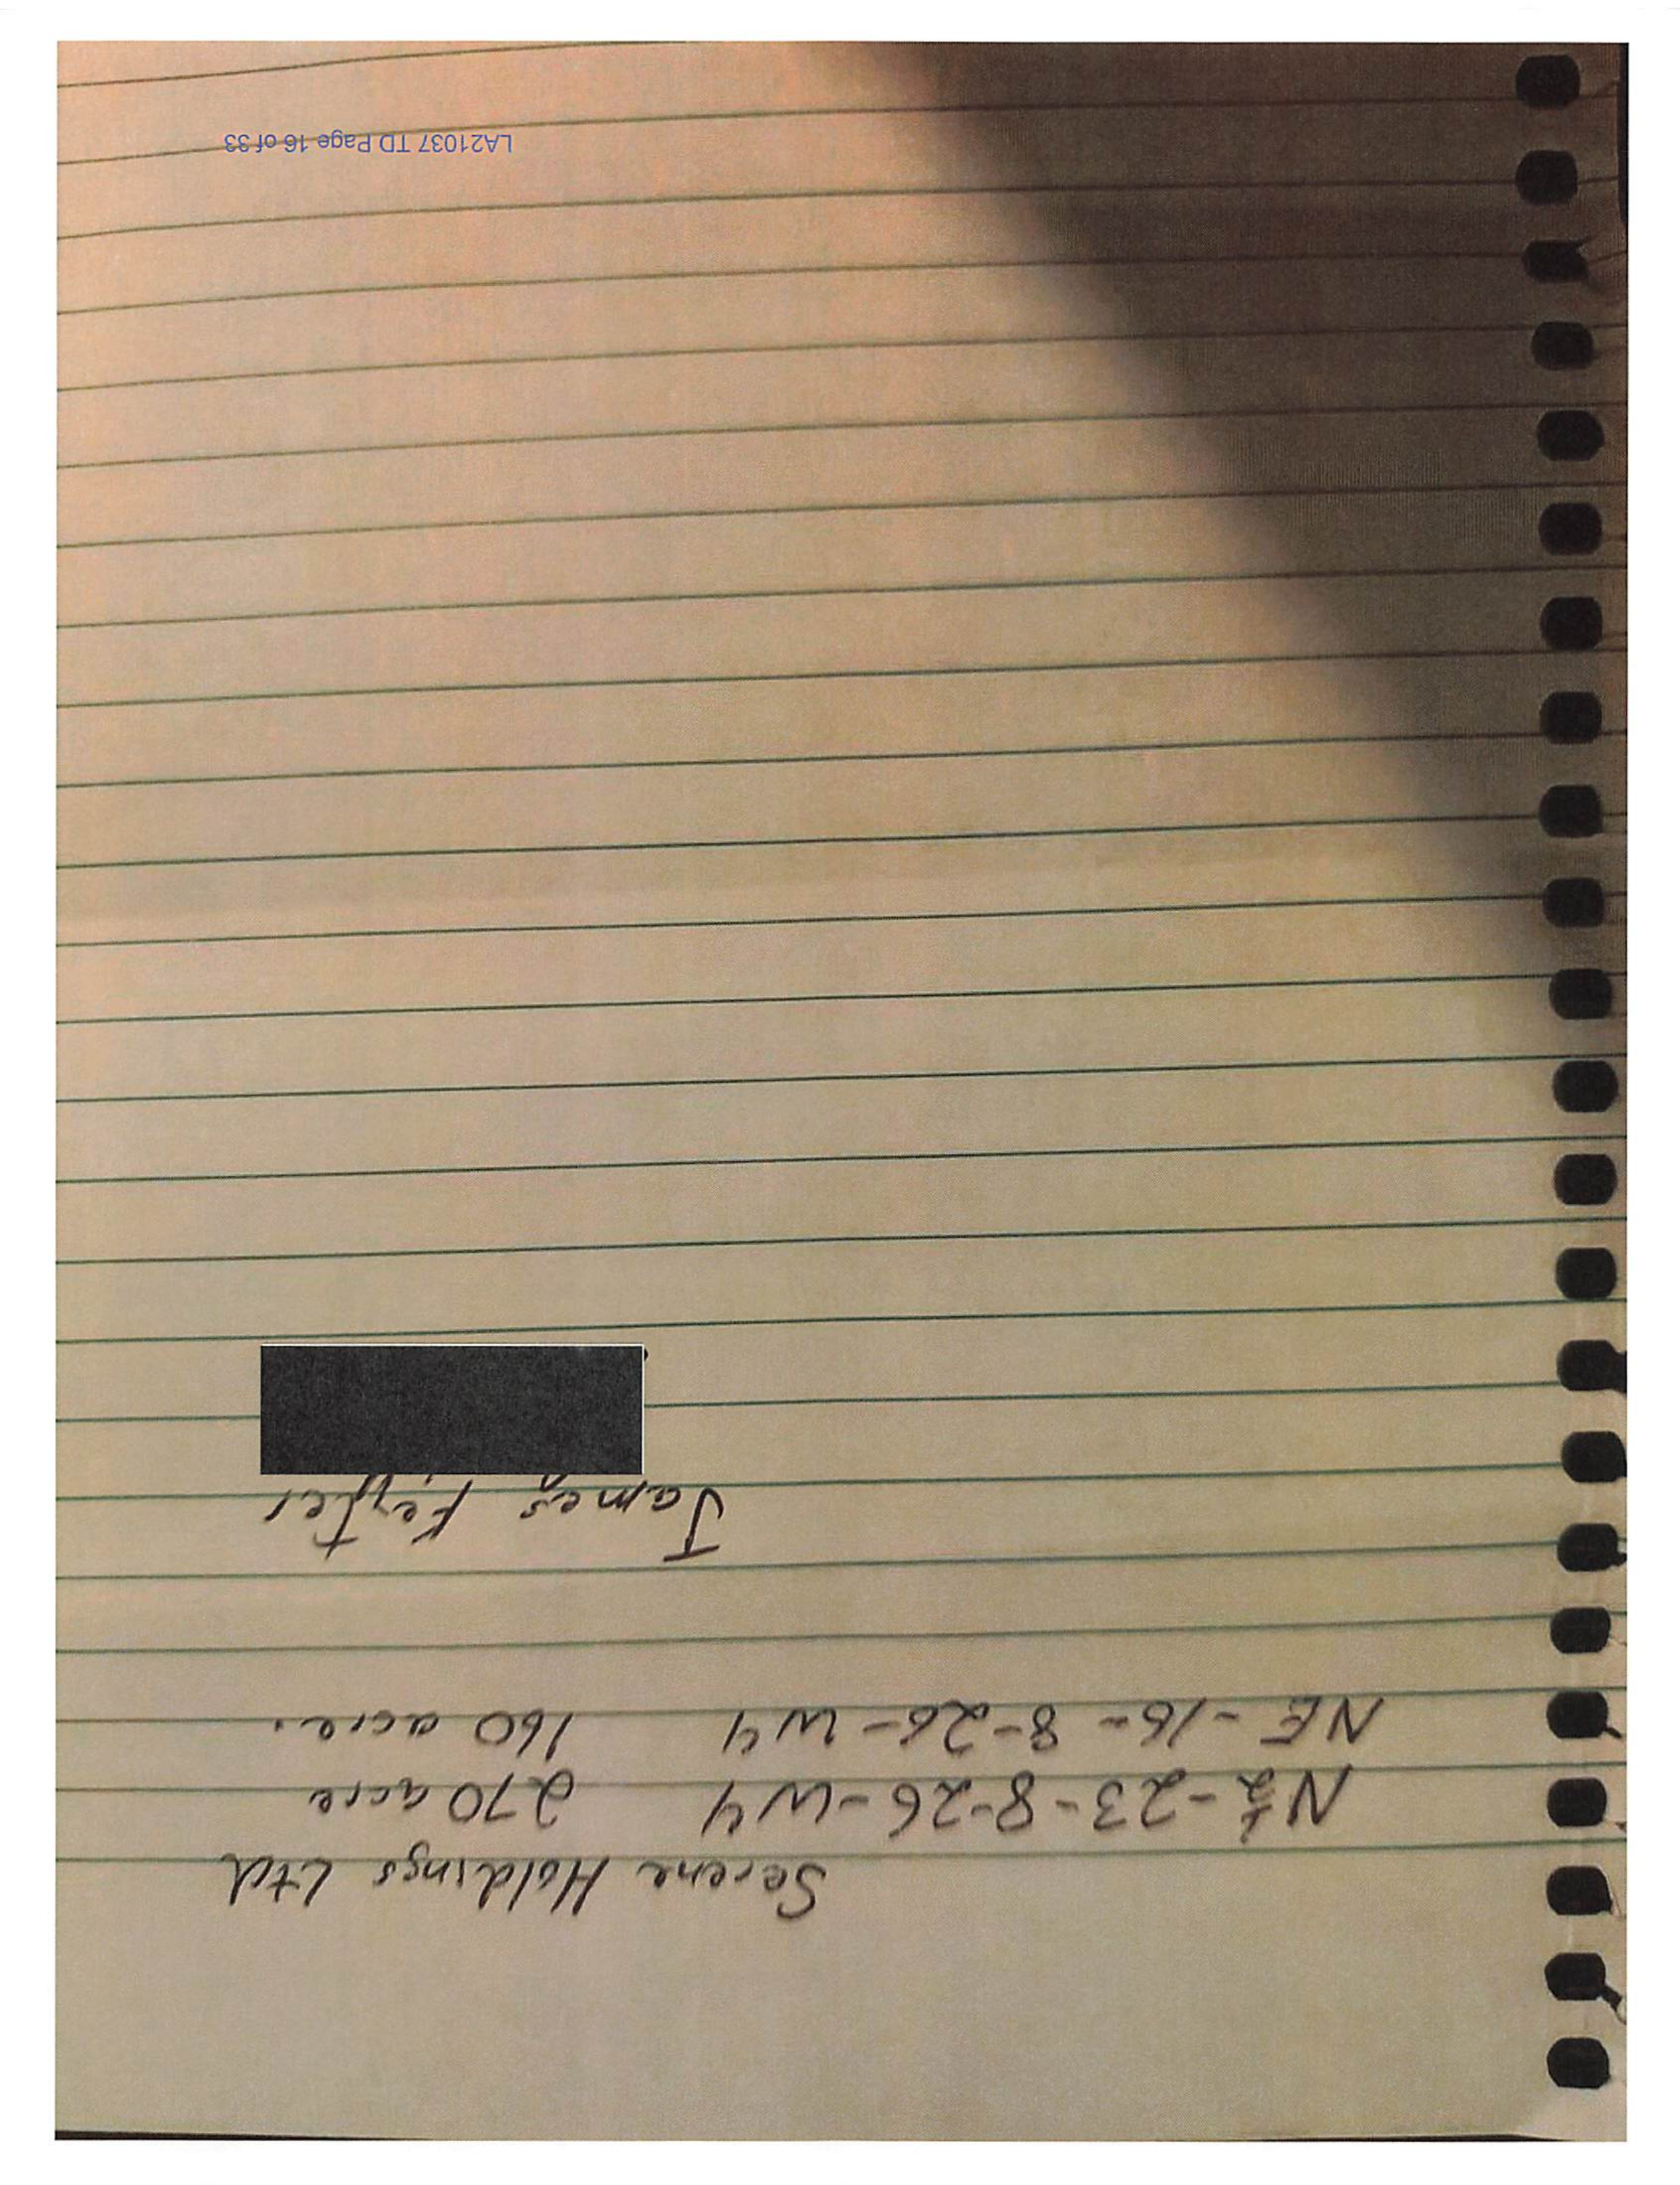 Serene Holdings Ltd
N½-23-8-26-W4 270 acre
NE-16-8-26-W4 160 acre.
James
LA21037 TD Page 16 of 33